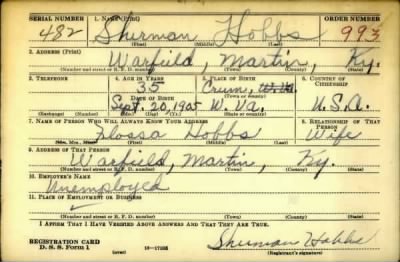 SERIAL NUMBER 1. NAME (Print) ORDER NUMBER
482 Sherman Hobbs 993
(First) (Middle) (Last)
2. ADDRESS (Print)
Warfield, Martin, Ky.
(Number and street or R. F. D. number) (Town) (County) (State)
3. TELEPHONE 4. AGE IN YEARS 5. PLACE OF BIRTH 6. COUNTRY OF CITIZENSHIP
35 Crum, W. Va.
DATE OF BIRTH (Town or county)
Sept. 20, 1905 W. Va. U.S.A.
(Exchange) (Number) (Mo.) (Day) (Yr.) (State or country)
7. NAME OF PERSON WHO WILL ALWAYS KNOW YOUR ADDRESS 8. RELATIONSHIP OF THAT PERSON
Flossa Hobbs Wife
(Mr., Mrs., Miss) (First) (Middle) (Last)
9. ADDRESS OF THAT PERSON
Warfield, Martin, Ky.
(Number and street or R. F. D. number) (Town) (County) (State)
10. EMPLOYER'S NAME
Unemployed
11. PLACE OF EMPLOYMENT OR BUSINESS
(Number and street or R. F. D. number) (Town) (County) (State)
I AFFIRM THAT I HAVE VERIFIED ABOVE ANSWERS AND THAT THEY ARE TRUE.
REGISTRATION CARD
D. S. S. Form 1 (over) 16-17105 Sherman Hobbs
(Registrant's signature)